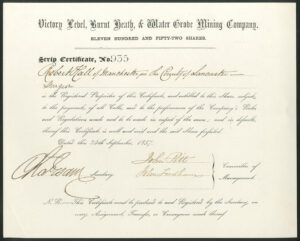 Victory Level, Burnt Heath, & Water Grove Mining Company,
ELEVEN HUNDRED AND FIFTY-TWO SHARES.
Scrip Certificate, No. 935
Robert Hall of Manchester in the County of Lancaster
Surgeon
is the Registered Proprietor of this Certificate, and entitled to this Share, subject
to the payment of all Calls, and to the performance of the Company's Rules
and Regulations made and to be made in respect of the same and in default
thereof this Certificate is null and void and the said Share forfeited
Dated this 24th September 1857.
John
Secretary
Committee of
Management.
N.B. This Certificate must be produced to and Registered by the Secretary, on
every Assignment, Transfer, or Conveyance made thereof